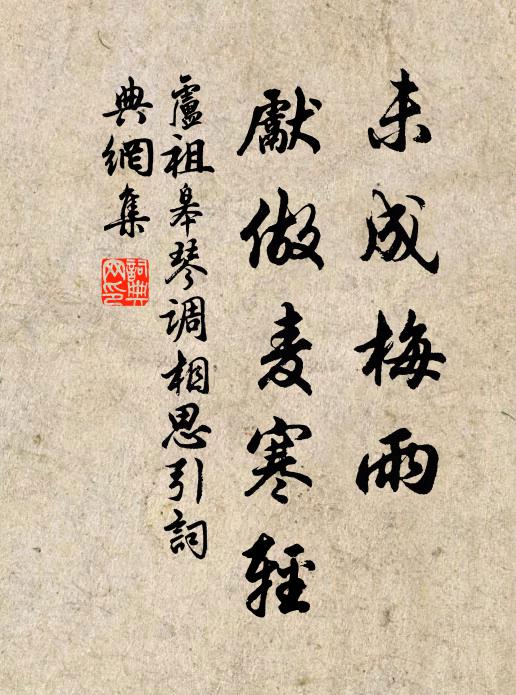 未成梅雨
獻做麦寒輕
盧祖皋琴調相思引詞
典網集
詞典网印